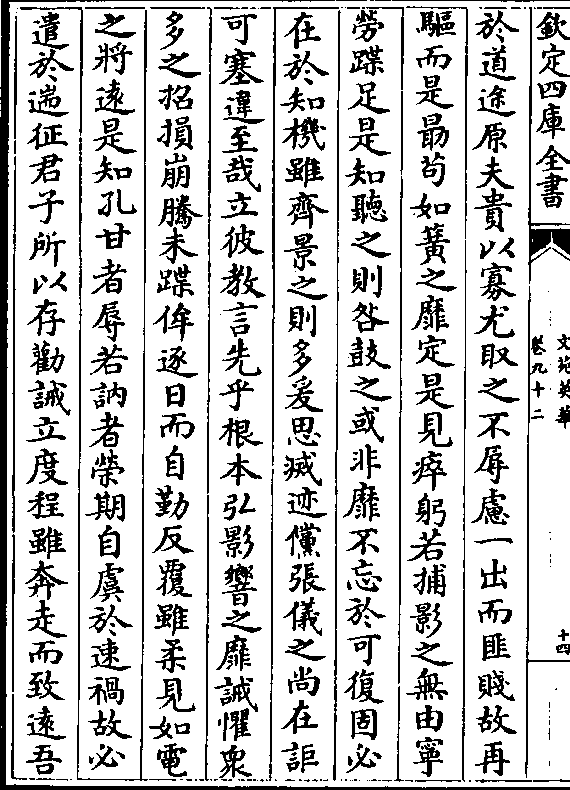 欽定四庫全書
文苑英華
卷九十二
十四
於道途原夫貴以寡尤取之不辱慮一出而匪賤故再
驅而是勗苟如簧之靡定是見瘁躬若捕影之無由寧
勞蹀足是知聽之則咎鼓之或非靡不忘於可復固必
在於知機雖齊景之則多爰思滅迹儻張儀之尚在詎
可塞違至哉立彼教言先乎根本弘影響之靡誠懼衆
多之招損崩騰未蹀侔逐日而自勤反覆雖柔見如電
之將遠是知孔甘者辱若訥者榮期自虞於速禍故必
遣於遄征君子所以存勸誡立度程雖奔走而致遠吾